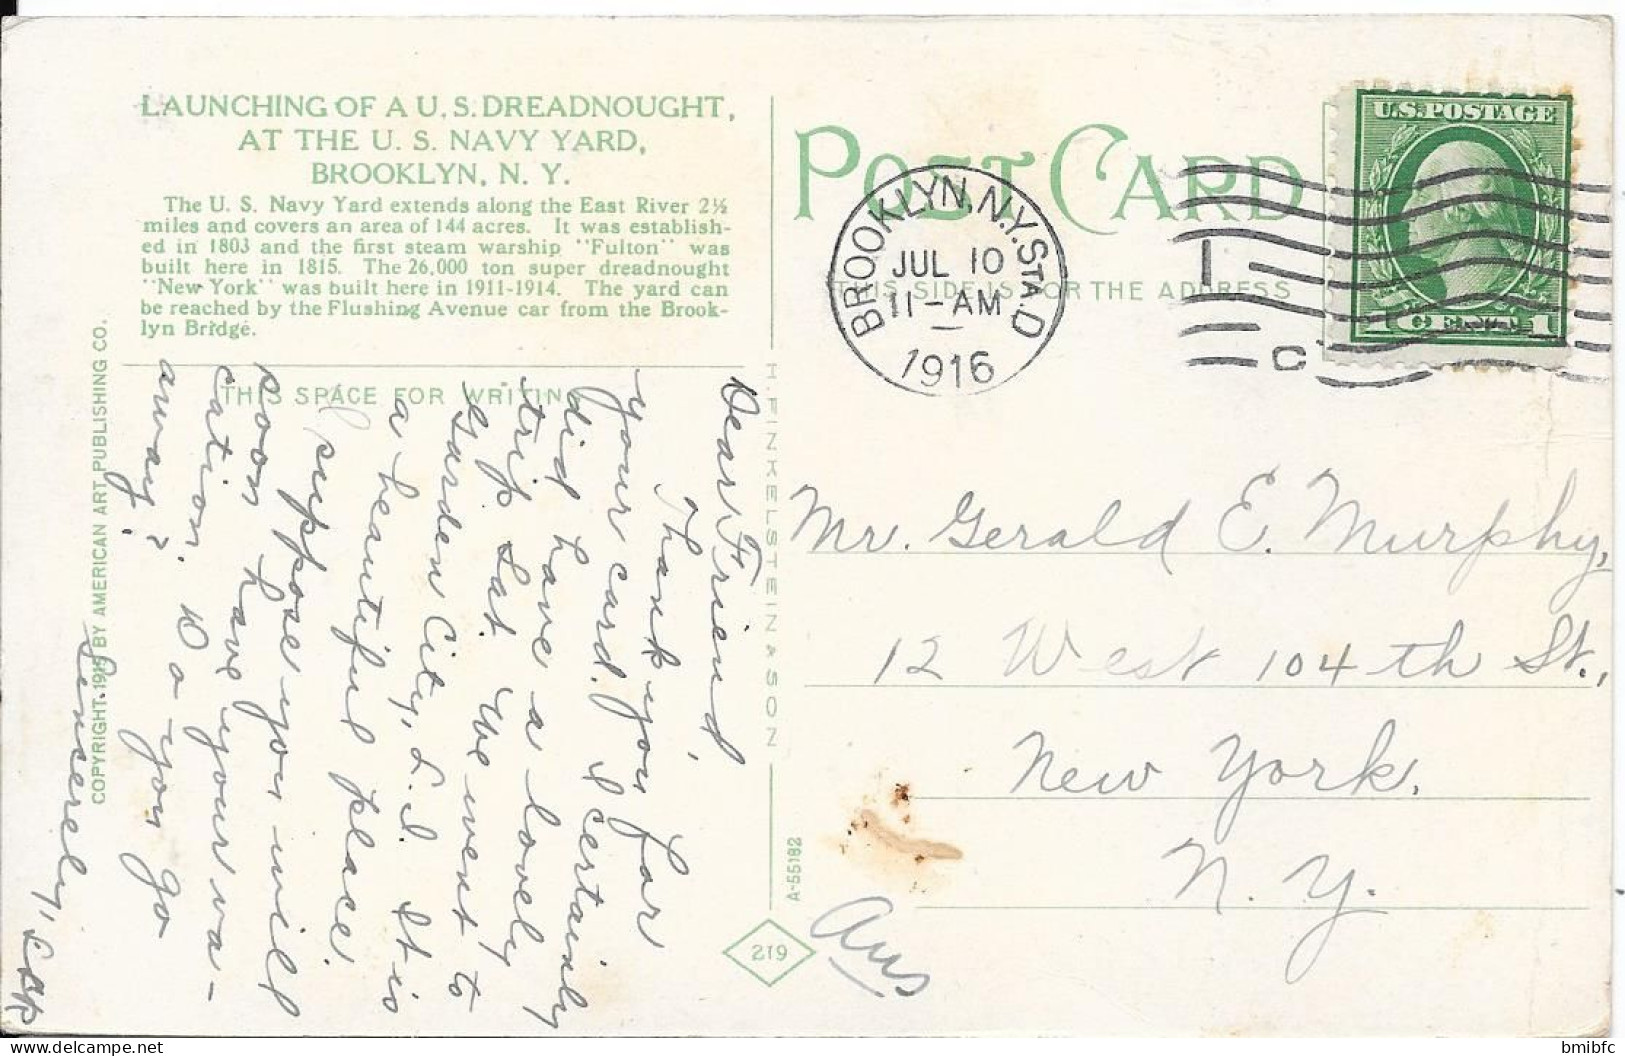 LAUNCHING OF A U. S. DREADNOUGHT,
AT THE U. S. NAVY YARD,
BROOKLYN, N. Y.
The U. S. Navy Yard extends along the East River 2½
miles and covers an area of 144 acres. It was establish-
ed in 1803 and the first steam warship "Fulton" was
built here in 1815. The 26,000 ton super dreadnought
"New York" was built here in 1911-1914. The yard can
be reached by the Flushing Avenue car from the Brook-
lyn Bridge.
THIS SPACE FOR WRITING
Dear Friend,
Thank you for
your card. I certainly
did have a lovely
trip Sat. We went to
Garden City, L.I. It is
a beautiful place.
I suppose you will
soon have your va-
cation. Do you go
away?
Sincerely,
COPYRIGHT. BY AMERICAN ART PUBLISHING CO.
H. FINKELSTEIN & SON
A-55182
219
POST CARD
THIS SIDE IS FOR THE ADDRESS
BROOKLYN, N.Y. STA. D
JUL 10
11-AM
1916
1
C
U.S. POSTAGE
1 CENT 1
Mr. Gerald E. Murphy,
12 West 104th St.,
New York,
N. Y.
Ans
bmibfc